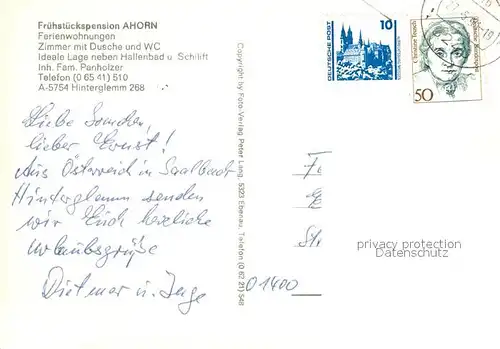 Frühstückspension AHORN
Ferienwohnungen
Zimmer mit Dusche und WC
Ideale Lage neben Hallenbad u. Schilift
Inh. Fam. Panholzer
Telefon (0 65 41) 510
A-5754 Hinterglemm 268
Liebe
lieber Ernst!
Aus Österreich in Saalbach
Hinterglemm senden
wir Euch herzliche
Urlaubsgrüße
Dietmar u. Inge
Copyright by Foto-Verlag Peter Lang, 5323 Ebenau, Telefon (0 62 21) 548
DEUTSCHE POST
10
50
O 1400
privacy protection
Datenschutz